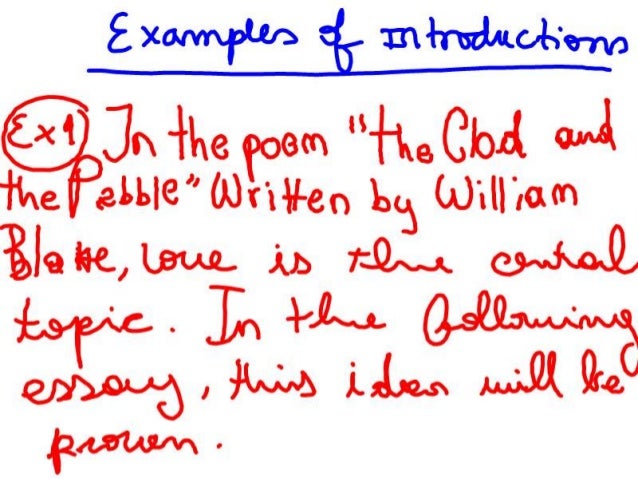 Examples of Introductions
Ex1 In the poem "the Clod and
the Pebble" Written by William
Blake, love is the central
topic. In the following
essay, this idea will be
proven.